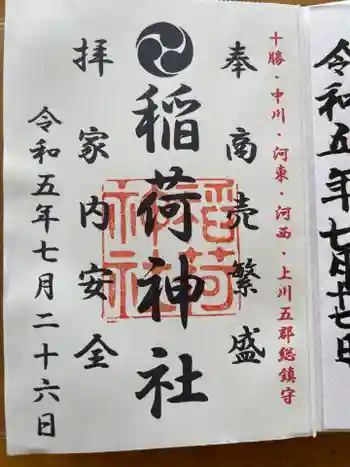 十勝・中川・河東・河西・上川五郡総鎮守
奉 商売繁盛
稲荷神社
稲荷神社
拝 家内安全
令和五年七月二十六日
令和五年七月十七日